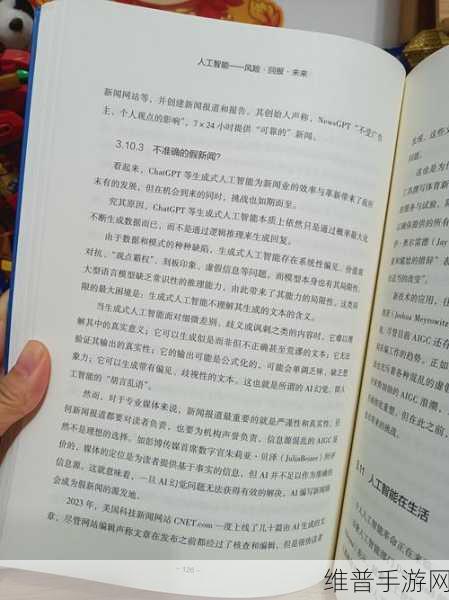 人工智能——风险·回报·未来
新闻网站等，并创建新闻报道和报告。其创始人声称，NewsGPT“不受广告
主、个人观点的影响”，7×24小时提供“可靠的”新闻。
3.10.3 不准确的假新闻？
看起来，ChatGPT等生成式人工智能为新闻业的效率与革新带来了前所
未有的发展，但在机会到来的同时，挑战也如期而至。
究其原因，ChatGPT等生成式人工智能本质上依然只是通过概率最大化
不断生成数据而已，而不是通过逻辑推理来生成回复。
由于数据和模式的种种缺陷，生成式人工智能存在系统性偏见、价值观
对抗、“观点霸权”、刻板印象、虚假信息等问题。而模型本身也有其局限性，
大型语言模型缺乏常识性的推理能力，由此带来了其能力的局限性。这类局
限的最大困境是：生成式人工智能不理解其生成的文本的含义。
当生成式人工智能面对细微差别、歧义或讽刺之类的内容时，它难以理
解其中的真实意义；它可以生成似是而非但不正确甚至荒谬的文本；它无法
验证其输出的真实性；它的输出可能是公式化的，可能会单调乏味、缺乏想
象力；它可以生成带有偏见、歧视性的文本。这也就是所谓的AI幻觉，即人
工智能的“胡言乱语”。
然而，对于专业媒体来说，新闻报道最重要的就是严谨性和真实性。任
何新闻报道都要对读者负责，也要为机构声誉负责，信息源混乱的AIGC显
然不是理想的选择。如彭博传媒首席数字官朱莉亚·贝泽（JuliaBeizer）所评
价的，媒体的定位是为读者提供基于事实的信息，但AI并不足以作为准确的
信息源。这就意味着，一旦AI幻觉问题无法获得有效的解决，AI编写新闻则
会成为假新闻的源发地。
2023年，美国科技新闻网站CNET.com一度上线了几十篇由AI生成的文
章，尽管网站编辑声称文章在发布之前都经过了核查和编辑，但是很快读者
- 126 -
发现，这些
这也是为什
新技术的应用，往
3.11 人工智能在生活
维普手游网